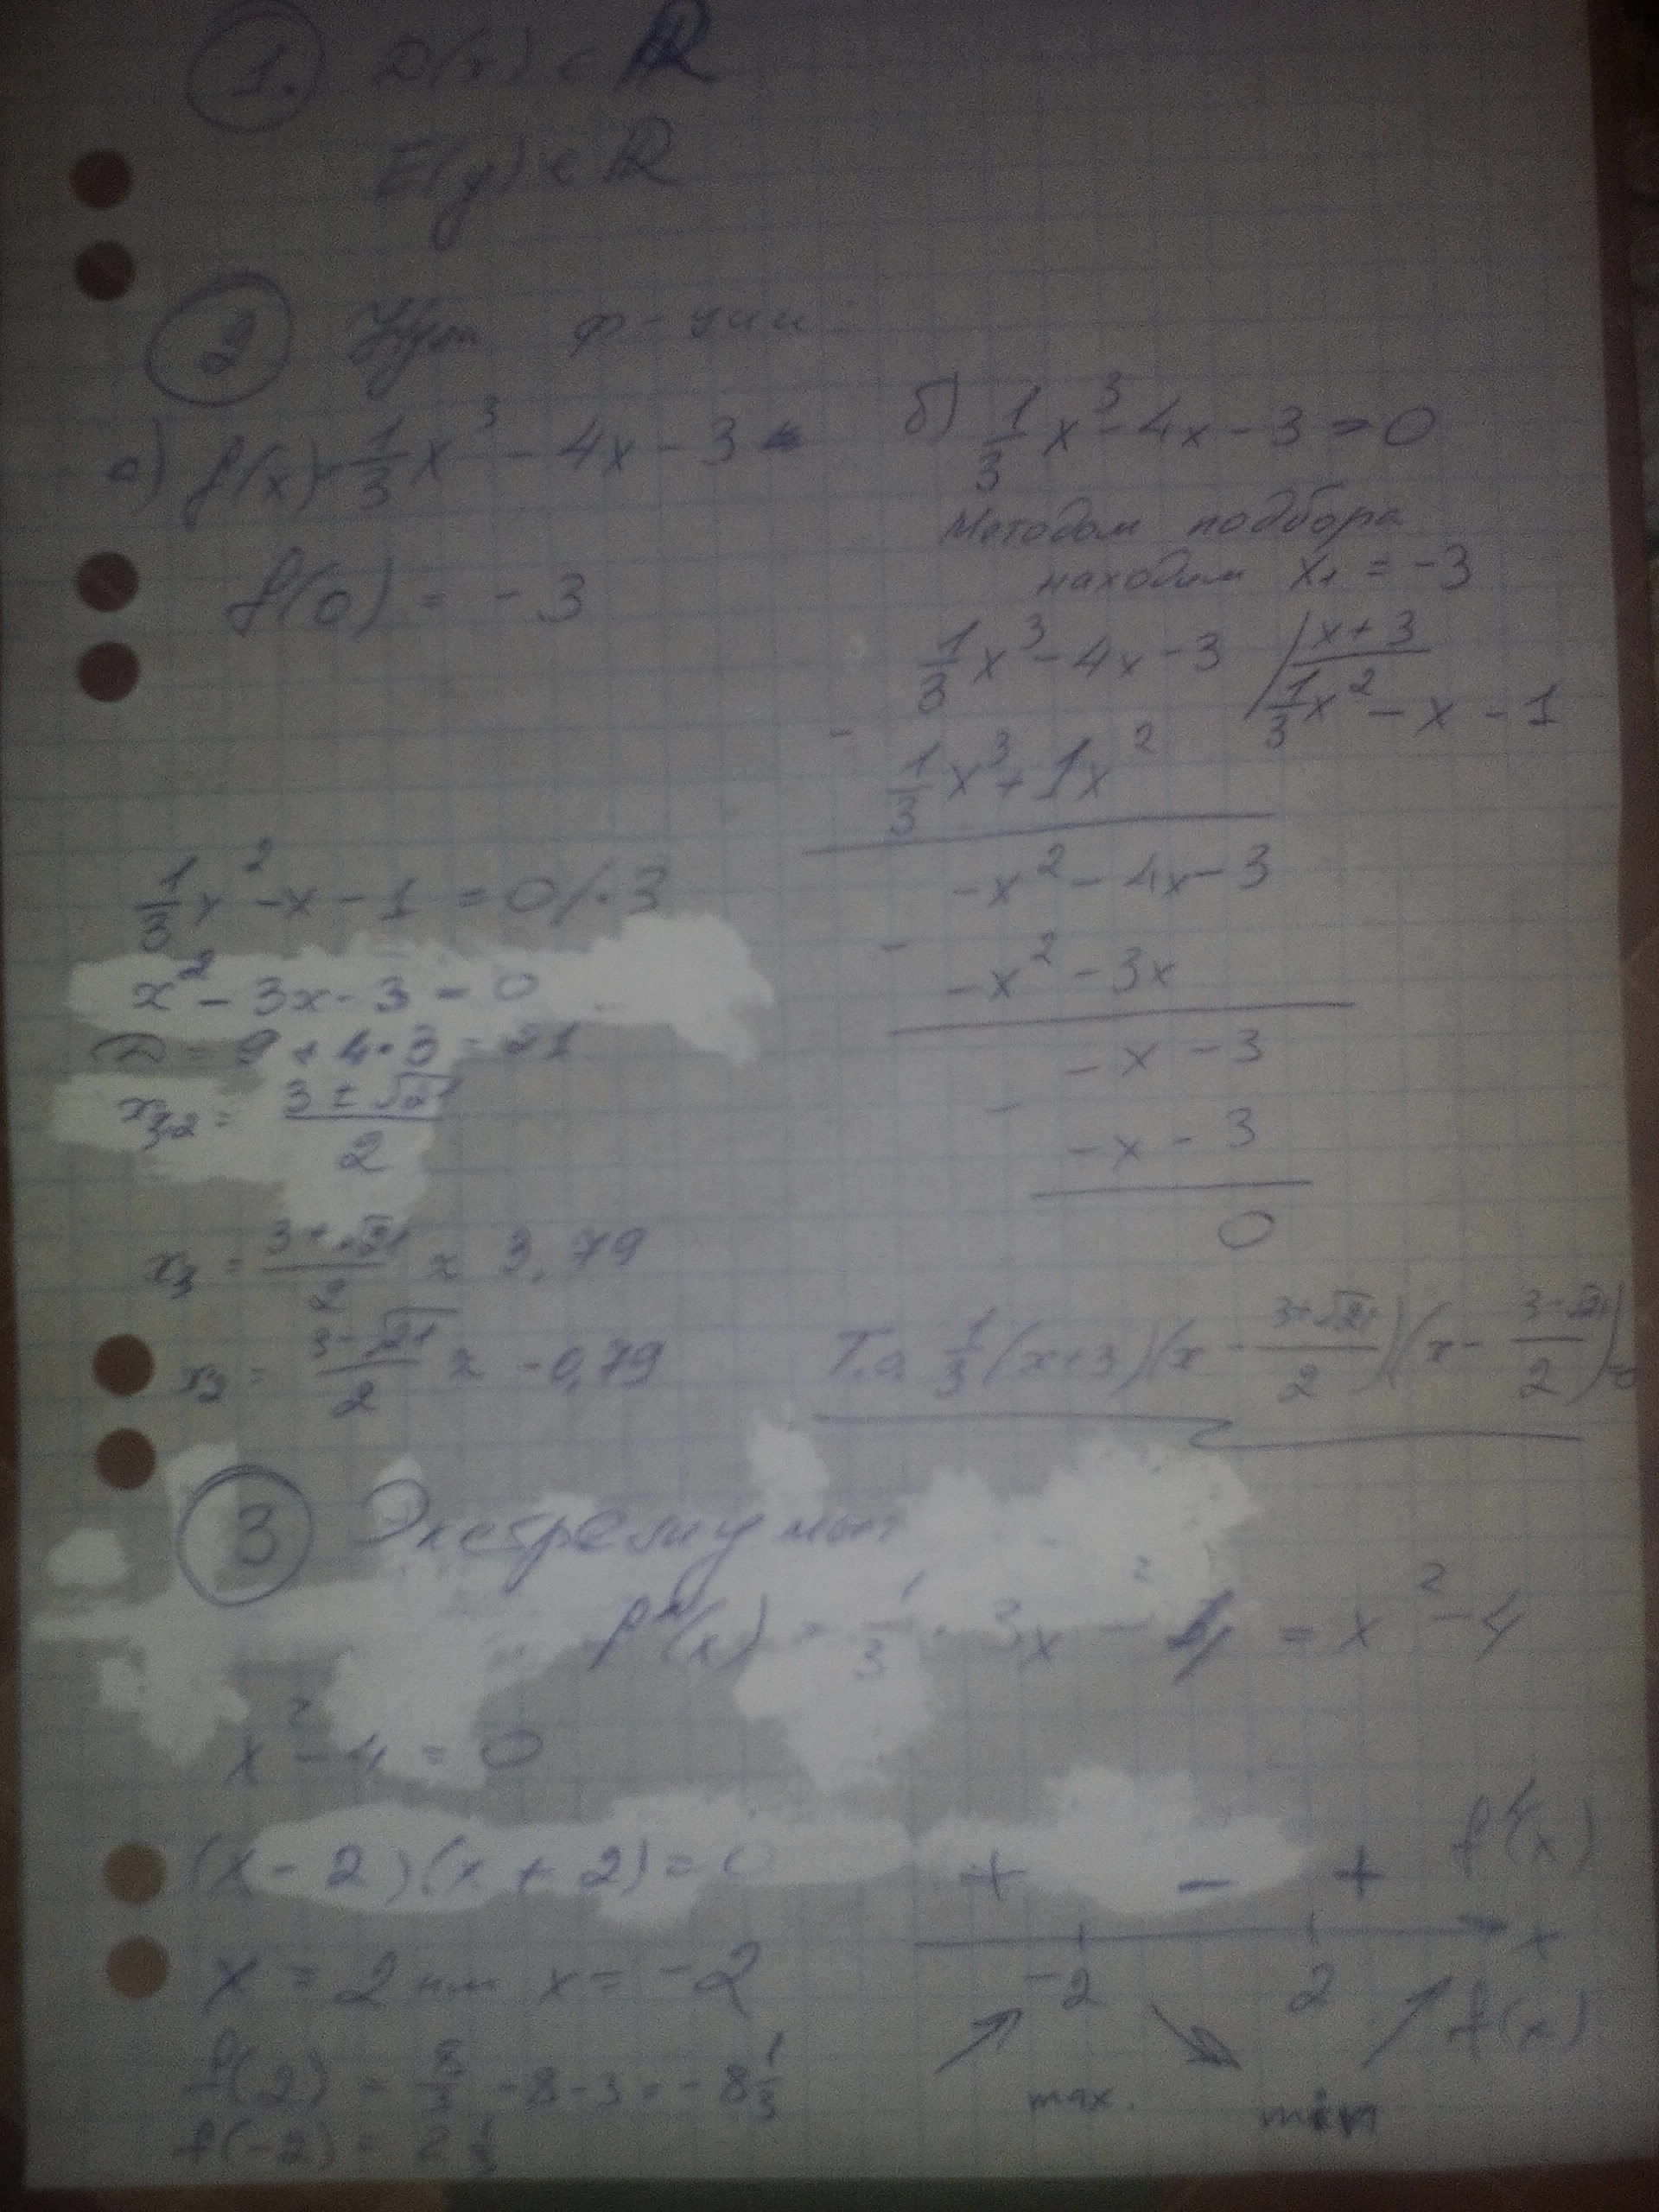 1. D(x) ∈ R
E(y) ∈ R
2 Нули ф-ции
а) f(x) = 1/3 x³ - 4x - 3
f(0) = -3
б) 1/3 x³ - 4x - 3 = 0
Методом подбора
находим x₁ = -3
1/3 x³ - 4x - 3 | x + 3
1/3 x² - x - 1
- 1/3 x³ + 1x²
-x² - 4x - 3
- -x² - 3x
-x - 3
- -x - 3
0
1/3 x² - x - 1 = 0 /·3
x² - 3x - 3 = 0
D = 9 + 4·3 = 21
x₃,₂ = (3 ± √21)/2
x₃ = (3 + √21)/2 ≈ 3,79
x₂ = (3 - √21)/2 ≈ -0,79
Т.о. 1/3 (x+3)(x - (3+√21)/2)(x - (3-√21)/2) = 0
3 Экстремумы
f'(x) = 1/3 · 3x² - 4 = x² - 4
x² - 4 = 0
(x - 2)(x + 2) = 0
x = 2 или x = -2
f(2) = 8/3 - 8 - 3 = -8 1/3
f(-2) = 2 1/3
+ - + f'(x)
-2 2 x
f(x)
max. min